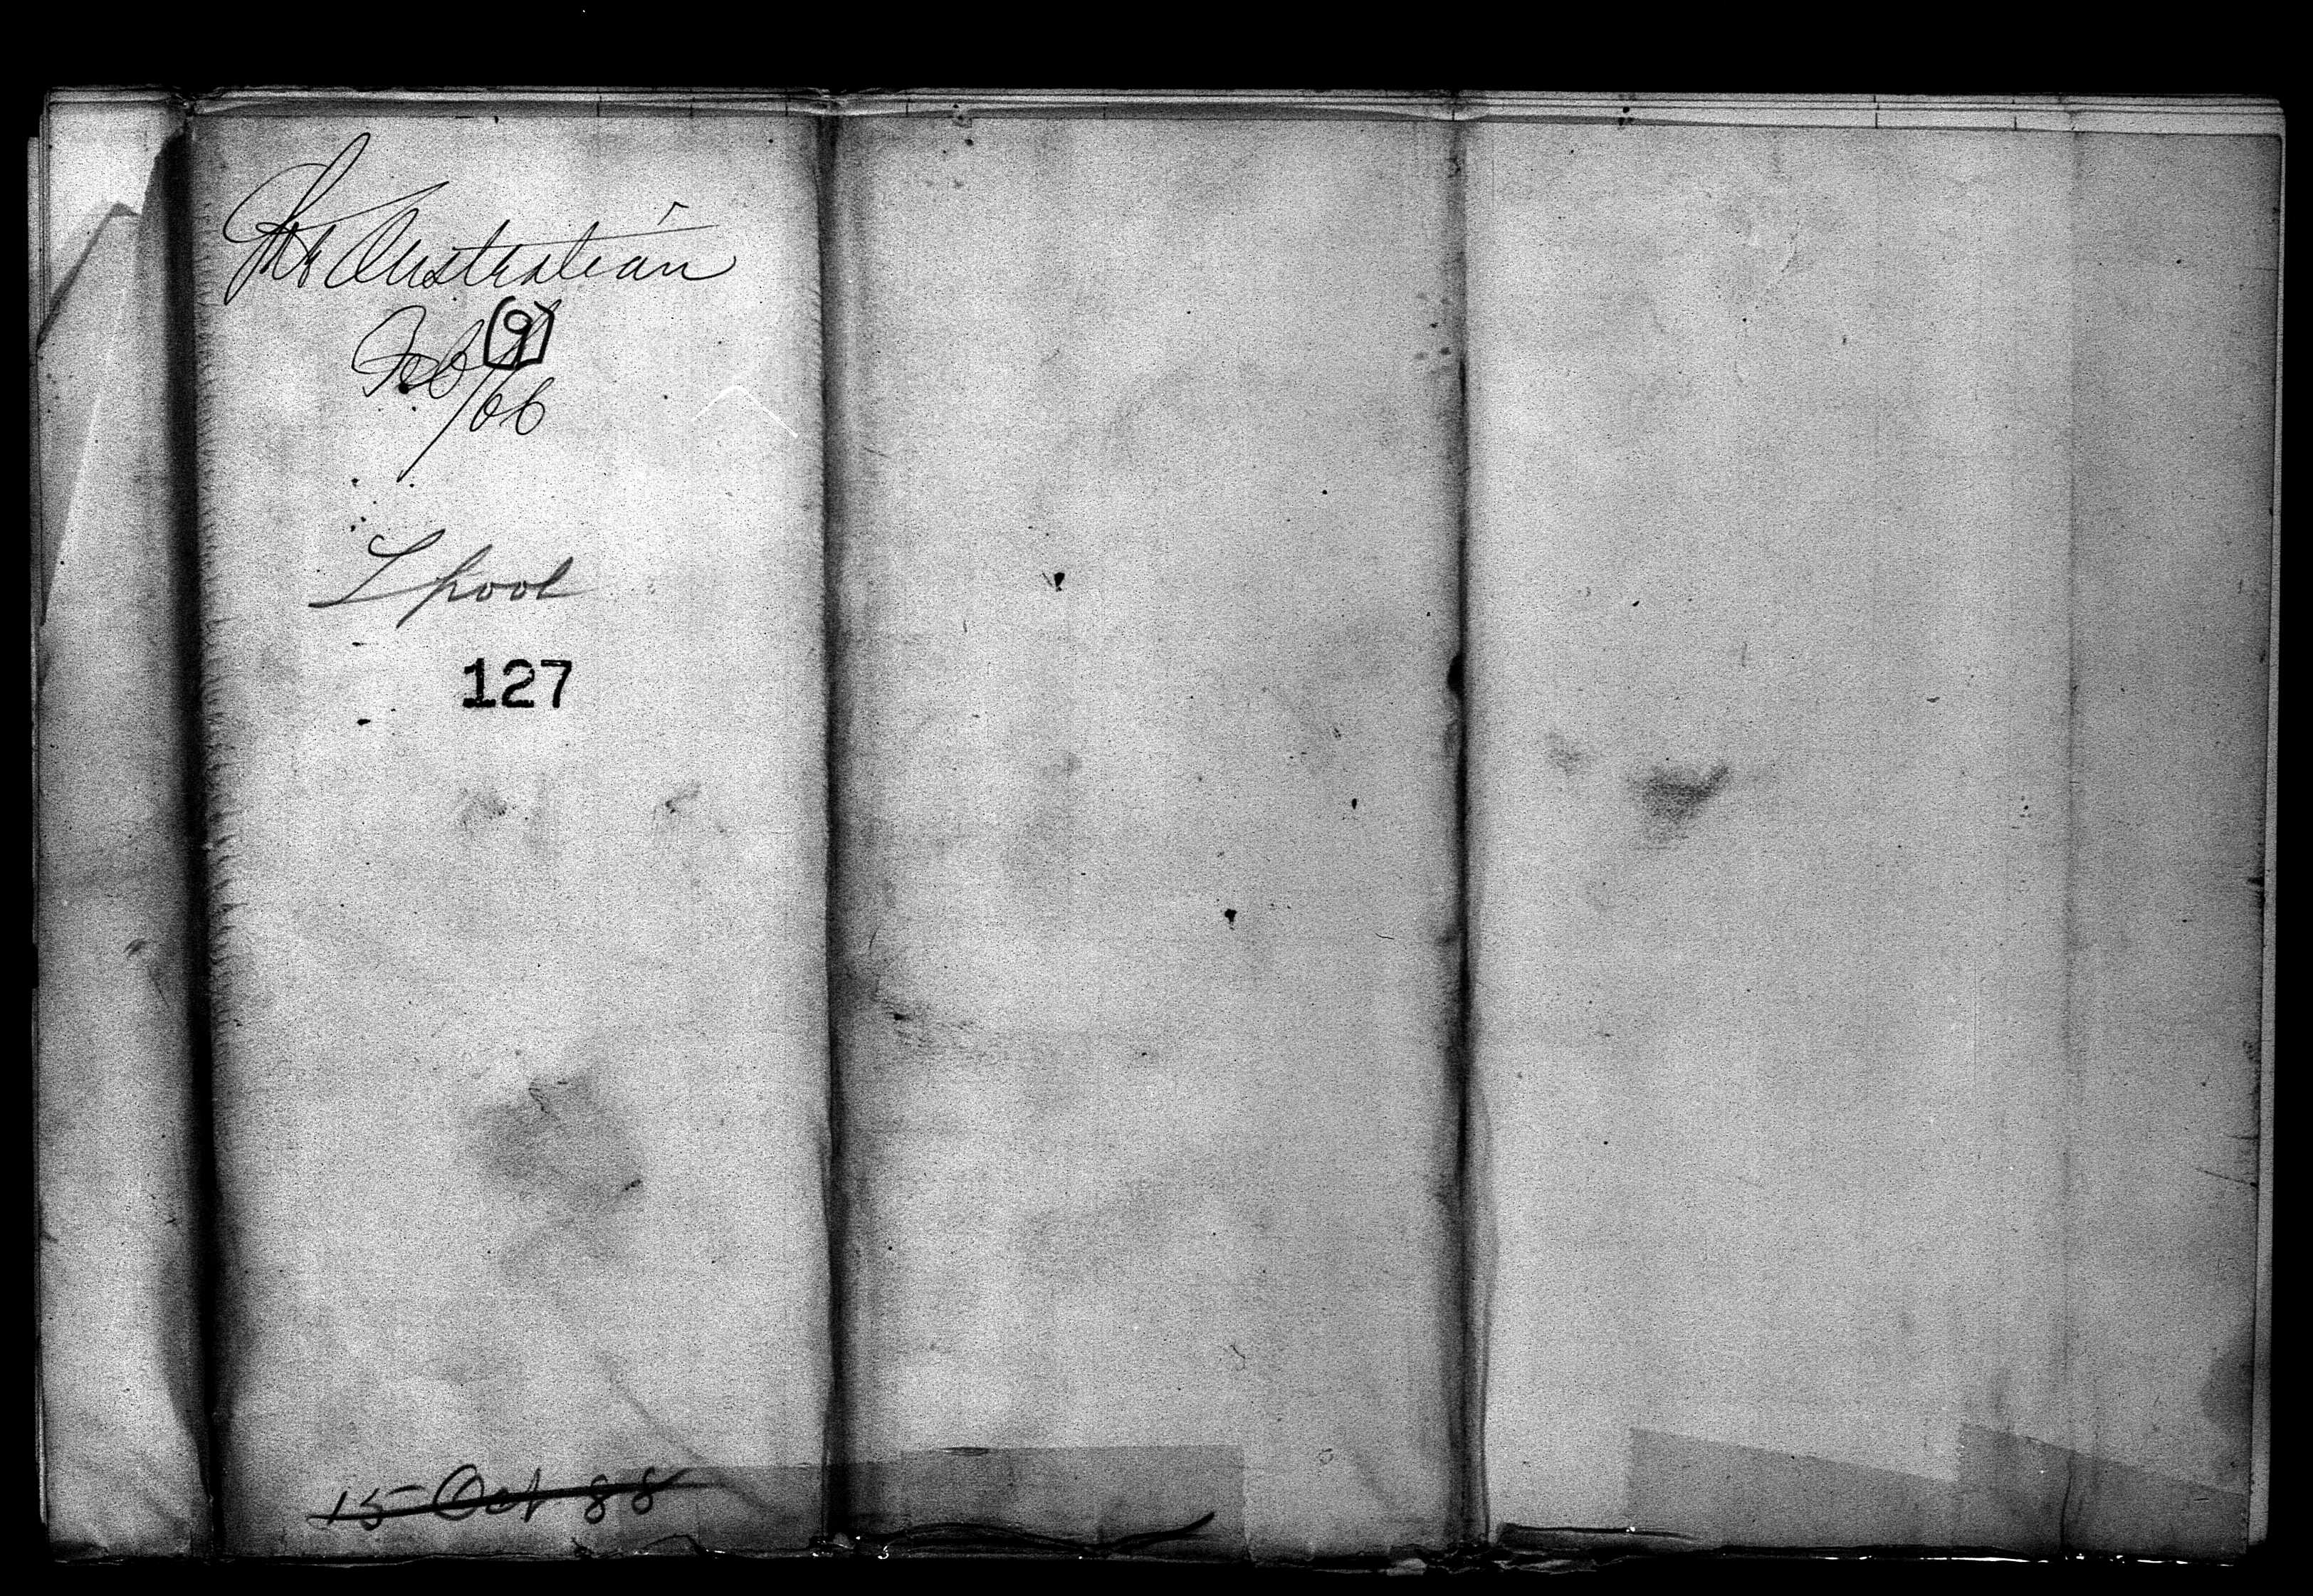 SS Australian
Feb 9
/06
L'pool
127
15 Oct 88